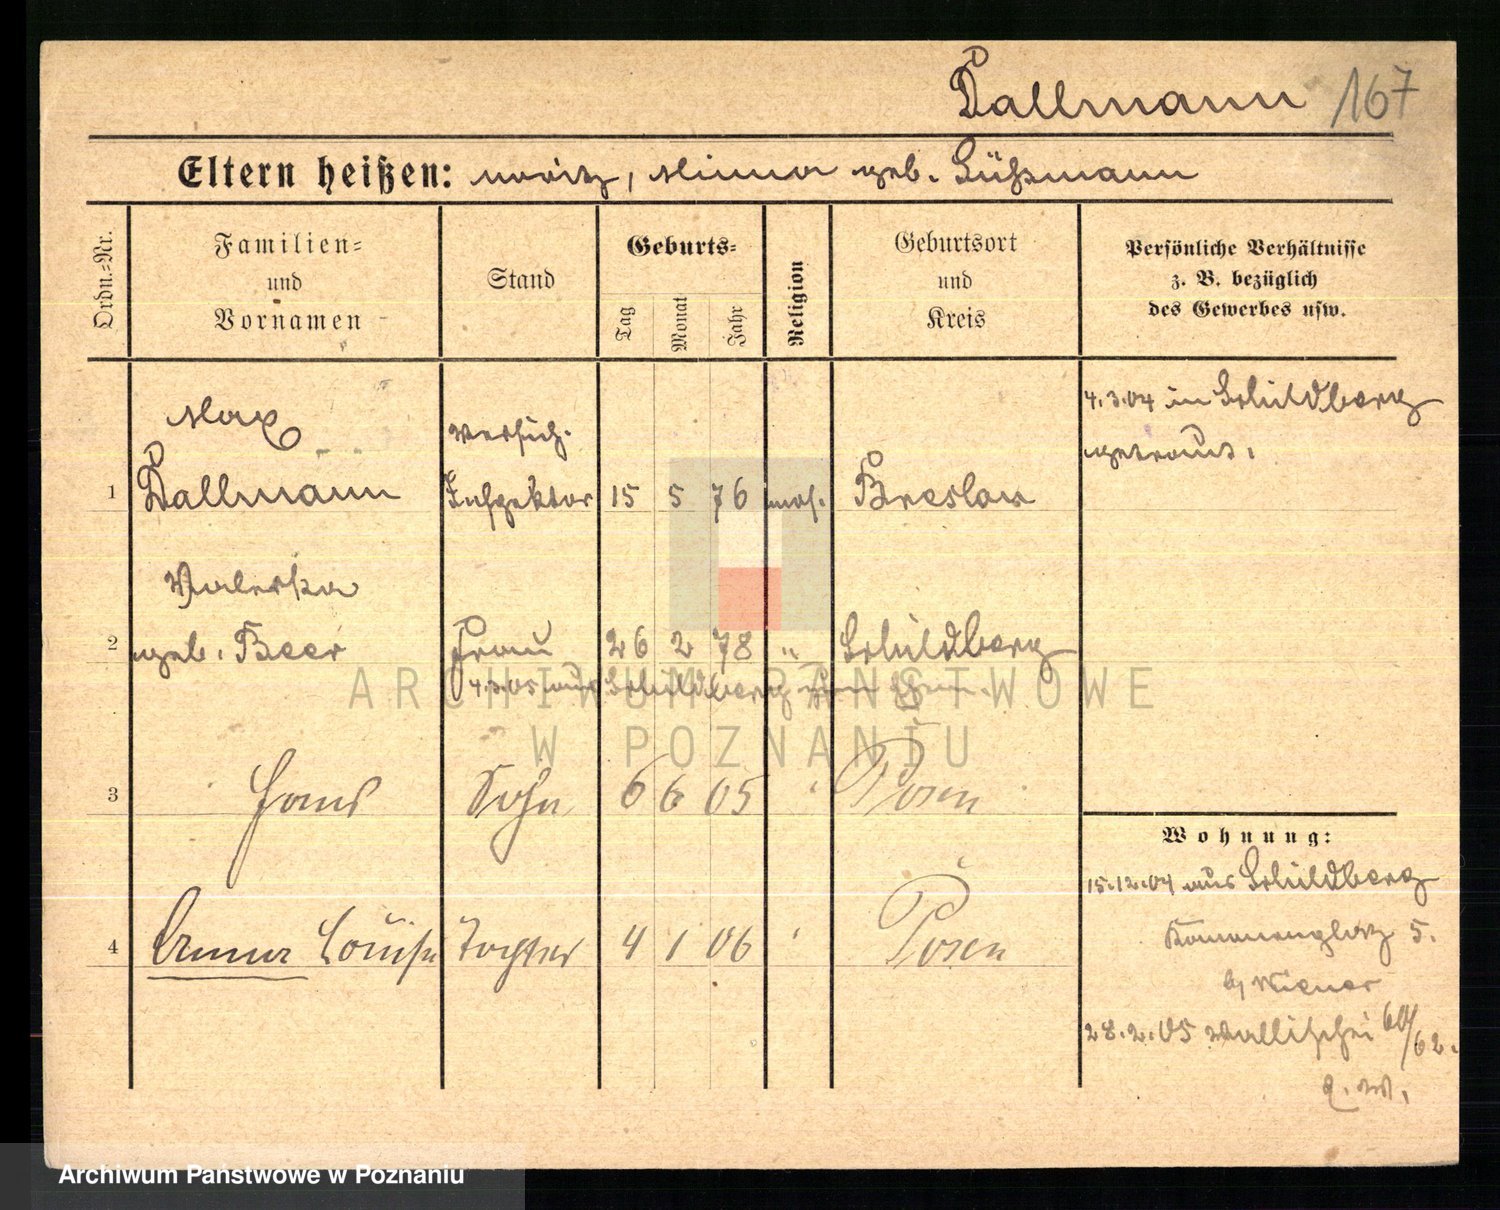 Dallmann 167
Eltern heißen: Moritz, Minna geb. Süßmann
Ordn.=Nr.
Familien=
und
Vornamen
Stand
Geburts=
Tag
Monat
Jahr
Religion
Geburtsort
und
Kreis
Persönliche Verhältnisse
z. B. bezüglich
des Gewerbes usw.
Max
1 Dallmann Versich. Inspektor 15 5 76 mos. Breslau
4.3.04 in Schildberg
getraut.
Valeska
2 geb. Beer Frau 26 2 78 " Schildberg
4.3.05 aus Schildberg
3 Hans Sohn 6 6 05 " Posen
4 Anna Louise Tochter 4 1 06 " Posen
Wohnung:
15.12.04 aus Schildberg
5.
b/ Wiener
28.2.05 Wallischei 60/62.
ARCHIWUM PAŃSTWOWE
W POZNANIU
Archiwum Państwowe w Poznaniu